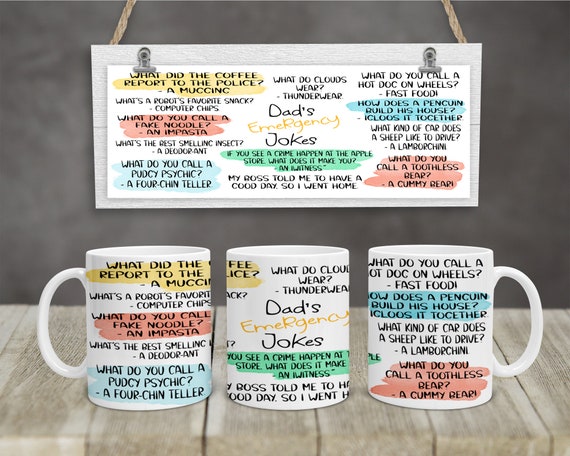 WHAT DID THE COFFEE
REPORT TO THE POLICE?
- A MUGGING
WHAT'S A ROBOT'S FAVORITE SNACK?
- COMPUTER CHIPS
WHAT DO YOU CALL A
FAKE NOODLE?
- AN IMPASTA
WHAT'S THE BEST SMELLING INSECT?
- A DEODOR-ANT
WHAT DO YOU CALL A
PUDGY PSYCHIC?
- A FOUR-CHIN TELLER
WHAT DO CLOUDS
WEAR?
- THUNDERWEAR
Dad's
EmeRgency
Jokes
IF YOU SEE A CRIME HAPPEN AT THE APPLE
STORE, WHAT DOES IT MAKE YOU?
- AN IWITNESS
MY BOSS TOLD ME TO HAVE A
GOOD DAY, SO I WENT HOME
WHAT DO YOU CALL A
HOT DOG ON WHEELS?
- FAST FOOD!
HOW DOES A PENGUIN
BUILD HIS HOUSE?
- IGLOOS IT TOGETHER
WHAT KIND OF CAR DOES
A SHEEP LIKE TO DRIVE?
- A LAMBORGHINI
WHAT DO YOU
CALL A TOOTHLESS
BEAR?
- A GUMMY BEAR!
WHAT DID THE
REPORT TO THE
- A MUGGIN
WHAT'S A ROBOT'S FAVORIT
- COMPUTER CHIPS
WHAT DO YOU CALL
FAKE NOODLE?
- AN IMPASTA
WHAT'S THE BEST SMELLING
- A DEODOR-ANT
WHAT DO YOU CALL A
PUDGY PSYCHIC?
- A FOUR-CHIN TELLER
LICE?
WHAT DO CLOUD
WEAR?
- THUNDERWEAR
Dad's
EmeRgency
Jokes
YOU SEE A CRIME HAPPEN AT THE
STORE, WHAT DOES IT MAKE Y
- AN IWITNESS
Y BOSS TOLD ME TO HAVE
GOOD DAY, SO I WENT HOM
WHAT DO YOU CALL A
HOT DOG ON WHEELS?
- FAST FOOD!
HOW DOES A PENGUIN
BUILD HIS HOUSE?
IGLOOS IT TOGETHER
WHAT KIND OF CAR DOES
A SHEEP LIKE TO DRIVE?
- A LAMBORGHINI
WHAT DO YOU
CALL A TOOTHLESS
BEAR?
- A GUMMY BEAR!